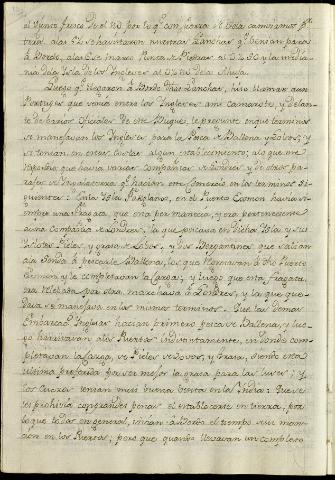 el viento fresco de el NO por lo q.e con fuerza de Vela caminamos p.a
tierra a las 5 se havilitaron nuestras Lanchas q.e venian para
á Bordo, a las 6 se marcó Punta de Piedras al S 2 SO y la media-
nia de la Isla de los Ingleses al O NO de la Aguja.
Luego q.e llegaron á Bordo dhas Lanchas, hizo llamar aun
Portugues que venia entre los Ingleses ami Camarote, y delan-
te de varios oficiales de este Buque, le pregunté en que terminos
se manejavan los Ingleses para la Pesca de Ballena y Lovos; y
si tenian en estas Costas algun establecimiento; a lo que me
respondió que havia varias compañias de Londres y de otros pa-
rajes de Inglaterra q.e hacian este Comercio en los terminos si-
guientes: En la Isla Falklans, en el Puerto Egmon havia si-
empre una fragata, que esta permanecia, y era perteneciente
a una Compañia de Londres, la que pescava en dichas Islas y sus
Islotes Pieles, y grasa de Lobos, y dos Bergantines que salian
ala Sonda á pescar la Ballena, los que llevavan á dho Puerto
Egmon y la completavan la Carga; y luego que esta fragata,
era relebada por otra, marchava á Londres, y la que que-
dava se manejava en los mismos terminos. Que las demas
Embarcac.s Inglesas hacian primero pesca de Ballena, y lue-
go havilitavan a los Puertos indistintamente, en donde com-
pletavan la carga, de Pieles de Lovos, y Grasa, siendo esta
ultima preferida por ser mejor la grasa para las luces; y
los Cueros tenian mui buena venta en la India: Que se
les prohivia con grandes penas el establecerse en tierra, por
lo que todos en general, vivian á Bordo el tiempo de su man-
cion en los Puertos; pero que quando llevavan un completo